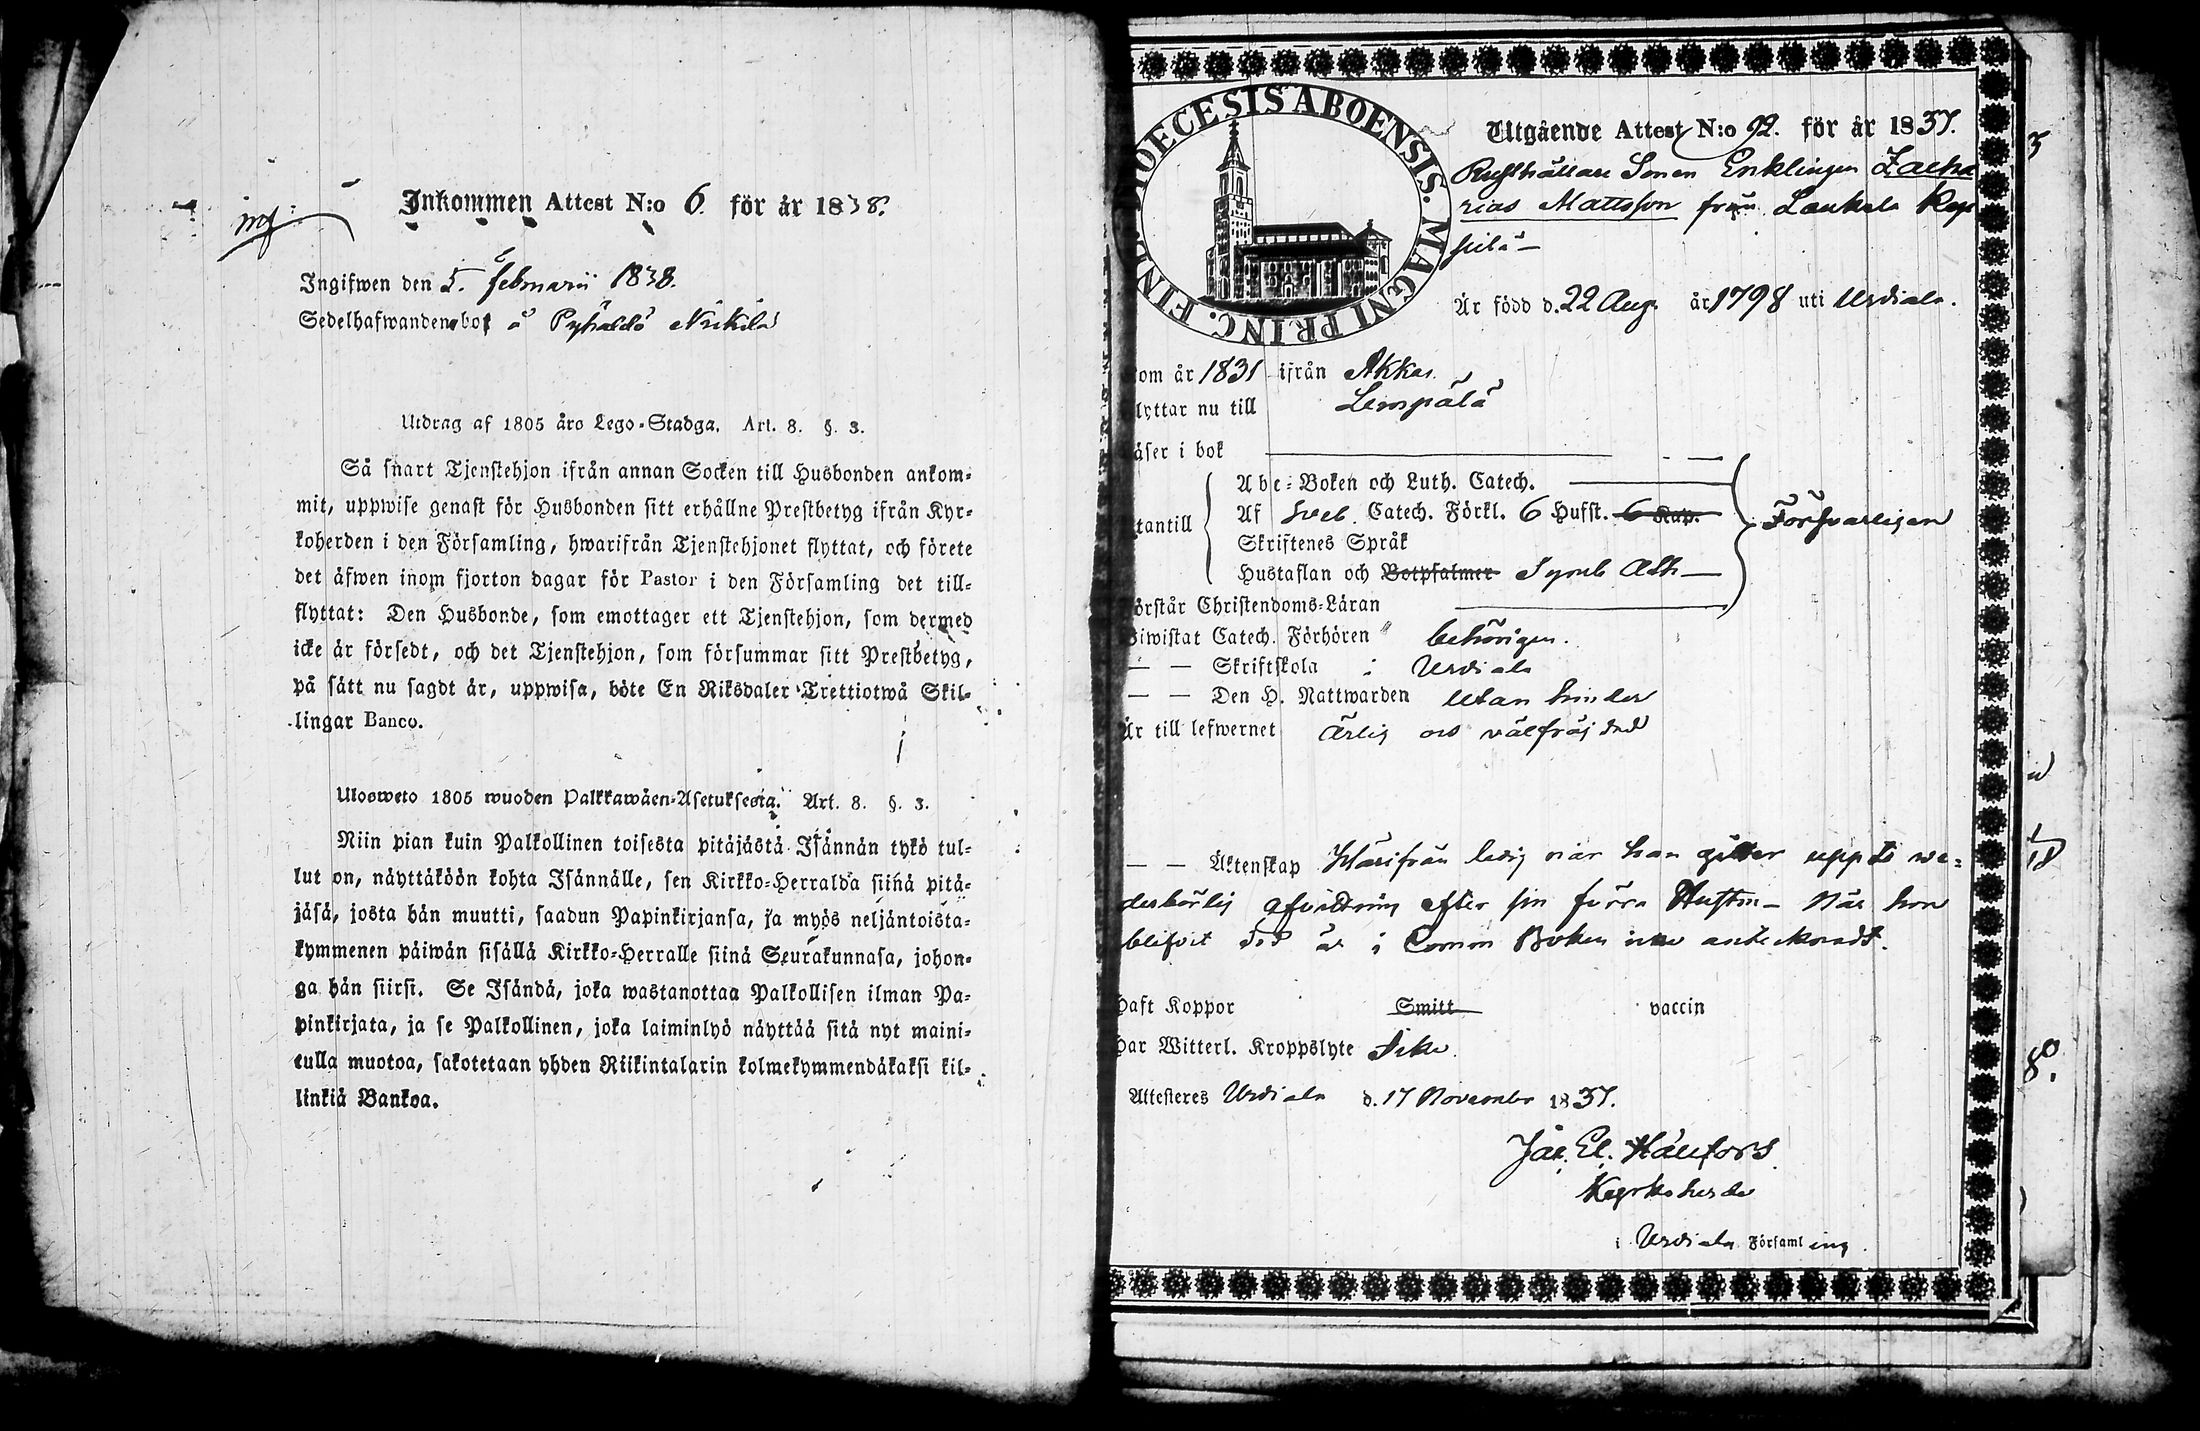 Inkommen Attest N:o 6. för år 1838.
Ingifwen den 5. Februarii 1838.
Sedelhafwanden, bor å Pyhäldö Nikilä
Utdrag af 1805 års Lego-Stadga. Art. 8. §. 3.
Så snart Tjenstehjon ifrån annan Socken till Husbonden ankom-
mit, uppwise genast för Husbonden sitt erhållne Prestbetyg ifrån Kyr-
koherden i den Församling, hwarifrån Tjenstehjonet flyttat, och förete
det äfwen inom fjorton dagar för Pastor i den Församling det till-
flyttat: Den Husbonde, som emottager ett Tjenstehjon, som dermed
icke är försedt, och det Tjenstehjon, som försummar sitt Prestbetyg,
på sätt nu sagdt är, uppwisa, böte En Riksdaler Trettiotwå Skil-
lingar Banco.
Ulosweto 1805 wuoden Palkkawäen-Asetuksesta. Art. 8. §. 3.
Niin pian kuin Palkollinen toisesta pitäjästä Isännän tykö tul-
lut on, näyttäköön kohta Isännälle, sen Kirkko-Herralda siinä pitä-
jäsä, josta hän muutti, saadun Papinkirjansa, ja myös neljäntoista-
kymmenen päiwän sisällä Kirkko-Herralle siinä Seurakunnasa, johon-
ga hän siirsi. Se Isändä, joka wastanottaa Palkollisen ilman Pa-
pinkirjata, ja se Palkollinen, joka laiminlyö näyttää sitä nyt maini-
tulla muotoa, sakotetaan yhden Riikintalarin kolmekymmendäkaksi kil-
linkiä Bankoa.
DIOECESIS ABOENSIS. MAGNI PRINC. FINL.
Utgående Attest N:o 92. för år 1837.
Rusthållare Sonen Enklingen Zacha
rias Mattsson från Laukela Rap
pila
Är född d. 22 Aug. år 1798 uti Urdiala.
om år 1831 ifrån Akkas
lyttar nu till Lempälä
äser i bok
Abc-Boken och Luth. Catech.
tantill Af Sveb. Catech. Förkl. 6 Hufst. 6 Kap. Försvarligen
Skriftenes Språk
Hustaflan och Botpsalmer Symb Ath
örstår Christendoms-Läran
iwistat Catech. Förhören behörigen.
— — Skriftskola i Urdiala
— — Den H. Nattwarden utan hinder
Är till lefwernet Ärlig och välfräjdad
— — Äktenskap Härifrån ledig när han gitter uppte we-
derbörlig afvittring efter sin förra Hustru — När hon
blifvit död är i Comm Boken icke antecknadt.
Haft Koppor Smitt vaccin
Har Witterl. Kroppslyte Icke
Attesteres Urdiala d. 17 November 1837.
Kyrkoherde
i Urdiala Församling.